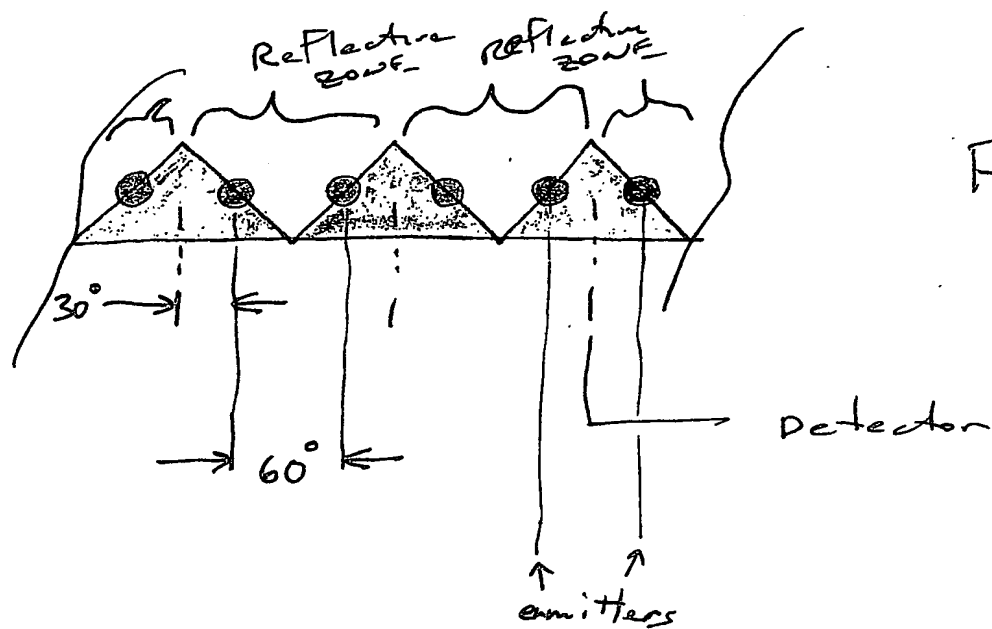 Reflective
ZONE
Reflective
ZONE
F
30°
60°
Detector
emmitters